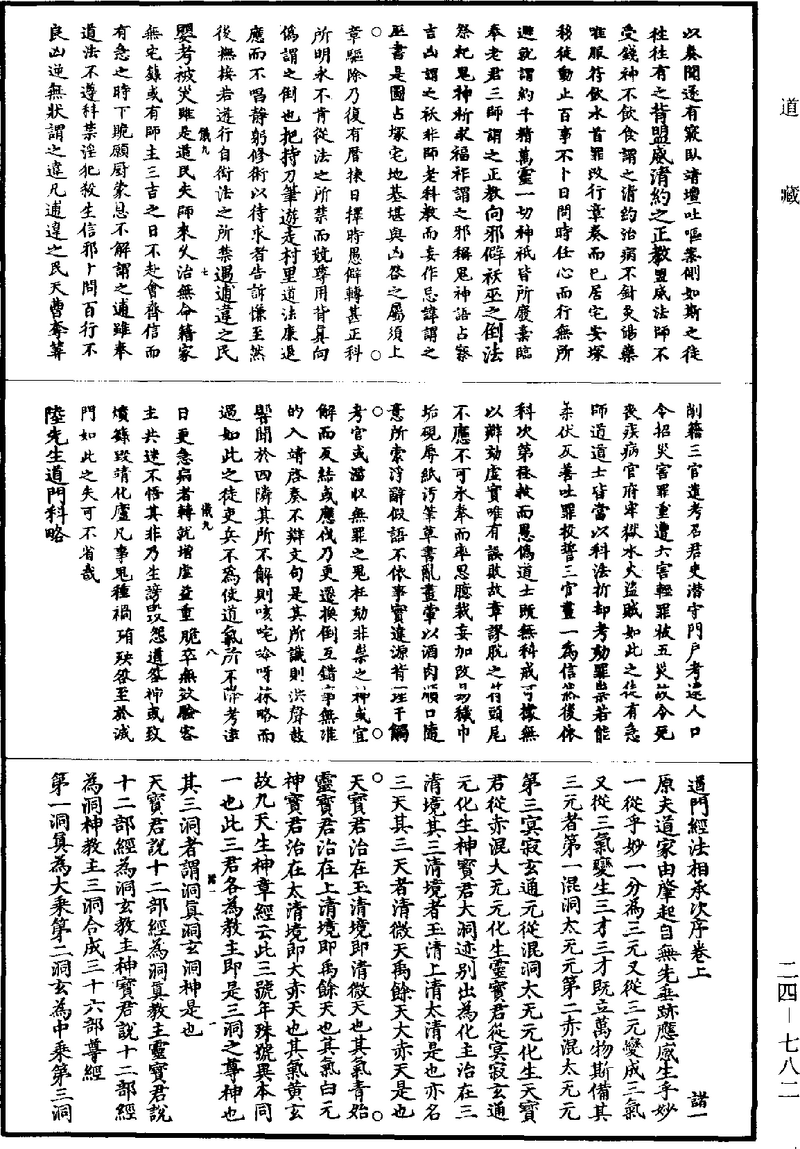 道藏
二四－七八二
以奏聞遂有寢臥靖壇吐嘔案側如斯之徒
往往有之背盟威清約之正教盟威法師不
受錢神不飲食謂之清約治病不針灸湯藥
唯服符飲水首罪改行章奏而已居宅安塚
移徒動止百事不卜日問時任心而行無所
避就謂約千精萬靈一切神祇皆所廢棄臨
奉老君三師謂之正教向邪僻祅巫之倒法
祭祀鬼神祈求福祚謂之邪稱鬼神語占察
吉凶謂之祅非師老科教而妄作忌諱謂之
巫書是圖占塚宅地基堪輿凶咎之屬須上
章驅除乃復有曆揀日擇時愚僻轉甚正科
所明永不肯從法之所禁而競尊用背真向
偽謂之倒也把持刀筆遊走村里道法廉退
應而不唱靜躬修術以待求者告訴慊至然
後撫接若遵行自衒法之所禁遇逋違之民
嬰考被災雖是道民失師來久治無命籍家
無宅錄或有師主三吉之日不赴會齊信而
有急之時下跪願廚蒙恩不解謂之逋雖奉
道法不遵科禁淫犯殺生信邪卜問百行不
良凶逆無狀謂之違凡逋違之民天曹奪筭
儀九
七
削籍三官遣考召君吏潛守門戶考逮人口
令招災害罪重遭六害輕罪被五災故今死
喪疾病官府牢獄水火盜賊如此之徒有急
師道道士皆當以科法折却考劾罪祟若能
柔伏反善吐罪投誓三官畫一為信然後依
科次第拯救而愚偽道士既無科戒可據無
以辯劾虛實唯有誤敗故章謬脫之符頭尾
不應不可承奉而率思臆裁妄加改易穢巾
垢硯厚紙污筆草書亂畫葷以酒肉順口隨
意所索浮辭假語不依事實違源背理干觸
考官或濫收無罪之鬼枉劾非祟之神或宜
解而反結或應伐乃更還換倒互錯事無准
的入靖啓奏不辯文句是其所識則洪聲鼓
響聞於四隣其所不解則咳咤冷呀抹略而
過如此之徒吏兵不為使道氣所不降考逮
日更急病者轉就增虛益重脆卒無效驗客
主共迷不悟其非乃生謗毀怨道咎神或致
燔籙毀靖化廬凡事鬼種禍殖殃欲至於滅
門如此之失可不省哉
陸先生道門科略
儀九
八
道門經法相承次序卷上
諸一
原夫道家由肇起自無先垂跡應感生乎妙
一從乎妙一分為三元又從三元變成三氣
又從三氣變生三才三才既立萬物斯備其
三元者第一混洞太无元第二赤混太无元
第三冥寂玄通元從混洞太无元化生天寶
君從赤混太无元化生靈寶君從冥寂玄通
元化生神寶君大洞迹别出為化主治在三
清境其三清境者玉清上清太清是也亦名
三天其三天者清微天禹餘天大赤天是也
天寶君治在玉清境即清微天也其氣青始
靈寶君治在上清境即禹餘天也其氣白元
神寶君治在太清境即大赤天也其氣黃玄
故九天生神章經云此三號年殊號異本同
一也此三君各為教主即是三洞之尊神也
其三洞者謂洞真洞玄洞神是也
天寶君說十二部經為洞真教主靈寶君說
十二部經為洞玄教主神寶君說十二部經
為洞神教主三洞合成三十六部尊經
第一洞真為大乘第二洞玄為中乘第三洞
諸一
一